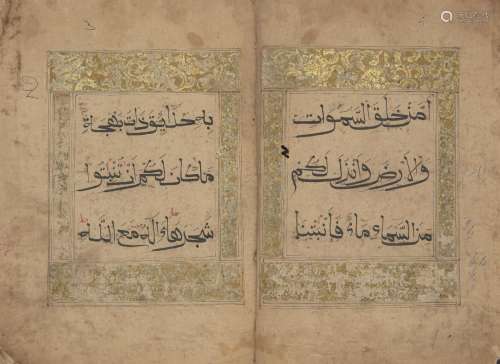 أمن خلق السموات
والارض وانزل لكم
من السماء ماء فأنبتنا
به حدايق ذات بهجة
ما كان لكم ان تنبتوا
شجرها ءاله مع الله